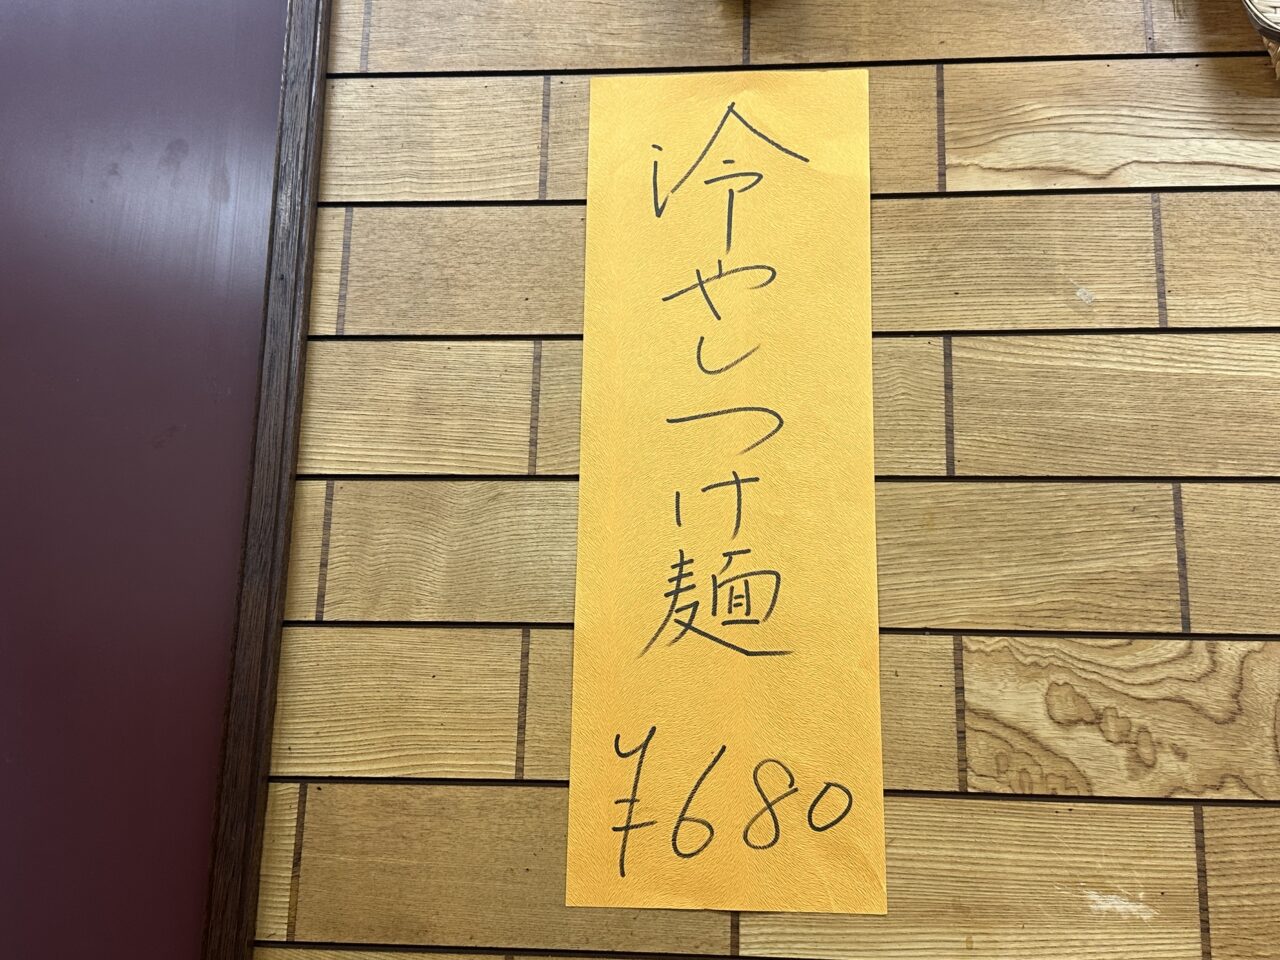 冷やしつけ麺
¥680